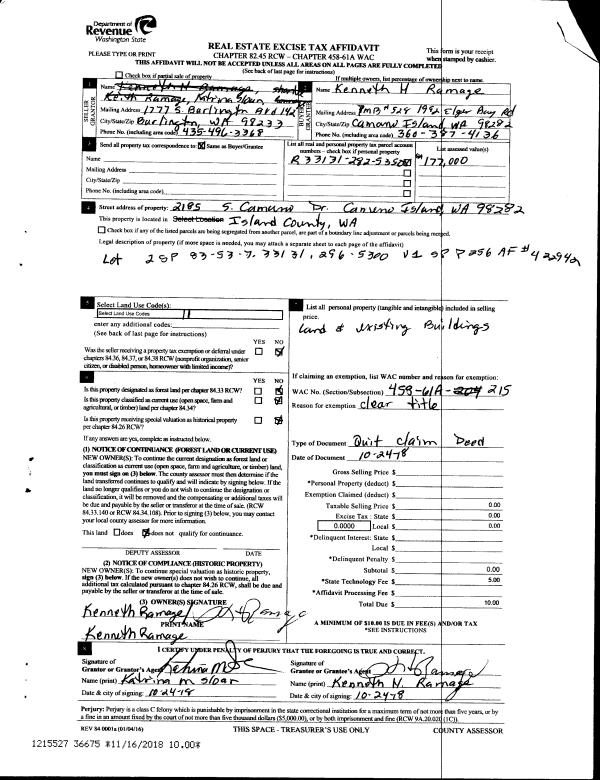 Department of
Revenue
Washington State
PLEASE TYPE OR PRINT
REAL ESTATE EXCISE TAX AFFIDAVIT
CHAPTER 82.45 RCW – CHAPTER 458-61A WAC
This form is your receipt
when stamped by cashier.
THIS AFFIDAVIT WILL NOT BE ACCEPTED UNLESS ALL AREAS ON ALL PAGES ARE FULLY COMPLETED
(See back of last page for instructions)
Check box if partial sale of property
If multiple owners, list percentage of ownership next to name.
SELLER
GRANTOR
Name Kenneth H Ramage,
Keith Ramage, Katrina Sloan,
Mailing Address 1777 S Burlington Blvd 142
City/State/Zip Burlington, WA 98233
Phone No. (including area code)
BUYER
GRANTEE
Name Kenneth H Ramage
Mailing Address PMB # 528 1982 Elger Bay Rd
City/State/Zip Camano Island, WA 98282
Phone No. (including area code) 360-387-4136
Send all property tax correspondence to: Same as Buyer/Grantee
Name
Mailing Address
City/State/Zip
Phone No. (including area code)
List all real and personal property tax parcel account
numbers – check box if personal property
R 33131-282-5350
List assessed value(s)
177,000
Street address of property: 2185 S. Camano Dr. Camano Island, WA 98282
This property is located in Select Location Island County, WA
Check box if any of the listed parcels are being segregated from another parcel, are part of a boundary line adjustment or parcels being merged.
Legal description of property (if more space is needed, you may attach a separate sheet to each page of the affidavit)
Lot 2 SP 83-53-7.33131.296-5300 V1 SP P 256 AF # 422942
Select Land Use Code(s):
Select Land Use Codes
enter any additional codes:
(See back of last page for instructions)
YES NO
Was the seller receiving a property tax exemption or deferral under
chapters 84.36, 84.37, or 84.38 RCW (nonprofit organization, senior
citizen, or disabled person, homeowner with limited income)?
YES NO
Is this property designated as forest land per chapter 84.33 RCW?
Is this property classified as current use (open space, farm and
agricultural, or timber) land per chapter 84.34?
Is this property receiving special valuation as historical property
per chapter 84.26 RCW?
If any answers are yes, complete as instructed below.
(1) NOTICE OF CONTINUANCE (FOREST LAND OR CURRENT USE)
NEW OWNER(S): To continue the current designation as forest land or
classification as current use (open space, farm and agriculture, or timber) land,
you must sign on (3) below. The county assessor must then determine if the
land transferred continues to qualify and will indicate by signing below. If the
land no longer qualifies or you do not wish to continue the designation or
classification, it will be removed and the compensating or additional taxes will
be due and payable by the seller or transferor at the time of sale. (RCW
84.33.140 or RCW 84.34.108). Prior to signing (3) below, you may contact
your local county assessor for more information.
This land does does not qualify for continuance.
DEPUTY ASSESSOR DATE
(2) NOTICE OF COMPLIANCE (HISTORIC PROPERTY)
NEW OWNER(S): To continue special valuation as historic property,
sign (3) below. If the new owner(s) does not wish to continue, all
additional tax calculated pursuant to chapter 84.26 RCW, shall be due and
payable by the seller or transferor at the time of sale.
(3) OWNER(S) SIGNATURE
Kenneth Ramage
PRINT NAME
Kenneth Ramage
List all personal property (tangible and intangible) included in selling
price.
Land & existing Buildings
If claiming an exemption, list WAC number and reason for exemption:
WAC No. (Section/Subsection) 458-61A-204 215
Reason for exemption clear title
Type of Document Quit Claim Deed
Date of Document 10-24-18
Gross Selling Price $
*Personal Property (deduct) $
Exemption Claimed (deduct) $
Taxable Selling Price $ 0.00
Excise Tax : State $ 0.00
0.0000 Local $ 0.00
*Delinquent Interest: State $
Local $
*Delinquent Penalty $
Subtotal $ 0.00
*State Technology Fee $ 5.00
*Affidavit Processing Fee $
Total Due $ 10.00
A MINIMUM OF $10.00 IS DUE IN FEE(S) AND/OR TAX
*SEE INSTRUCTIONS
I CERTIFY UNDER PENALTY OF PERJURY THAT THE FOREGOING IS TRUE AND CORRECT.
Signature of
Grantor or Grantor's Agent
Name (print) Katrina M Sloan
Date & city of signing: 10-24-18
Signature of
Grantee or Grantee's Agent
Name (print) Kenneth H. Ramage
Date & city of signing: 10-24-18
Perjury: Perjury is a class C felony which is punishable by imprisonment in the state correctional institution for a maximum term of not more than five years, or by
a fine in an amount fixed by the court of not more than five thousand dollars ($5,000.00), or by both imprisonment and fine (RCW 9A.20.020 (1C)).
REV 84 0001a (01/04/16)
THIS SPACE - TREASURER'S USE ONLY
COUNTY ASSESSOR
1215527 36675 *11/16/2018 10.00*